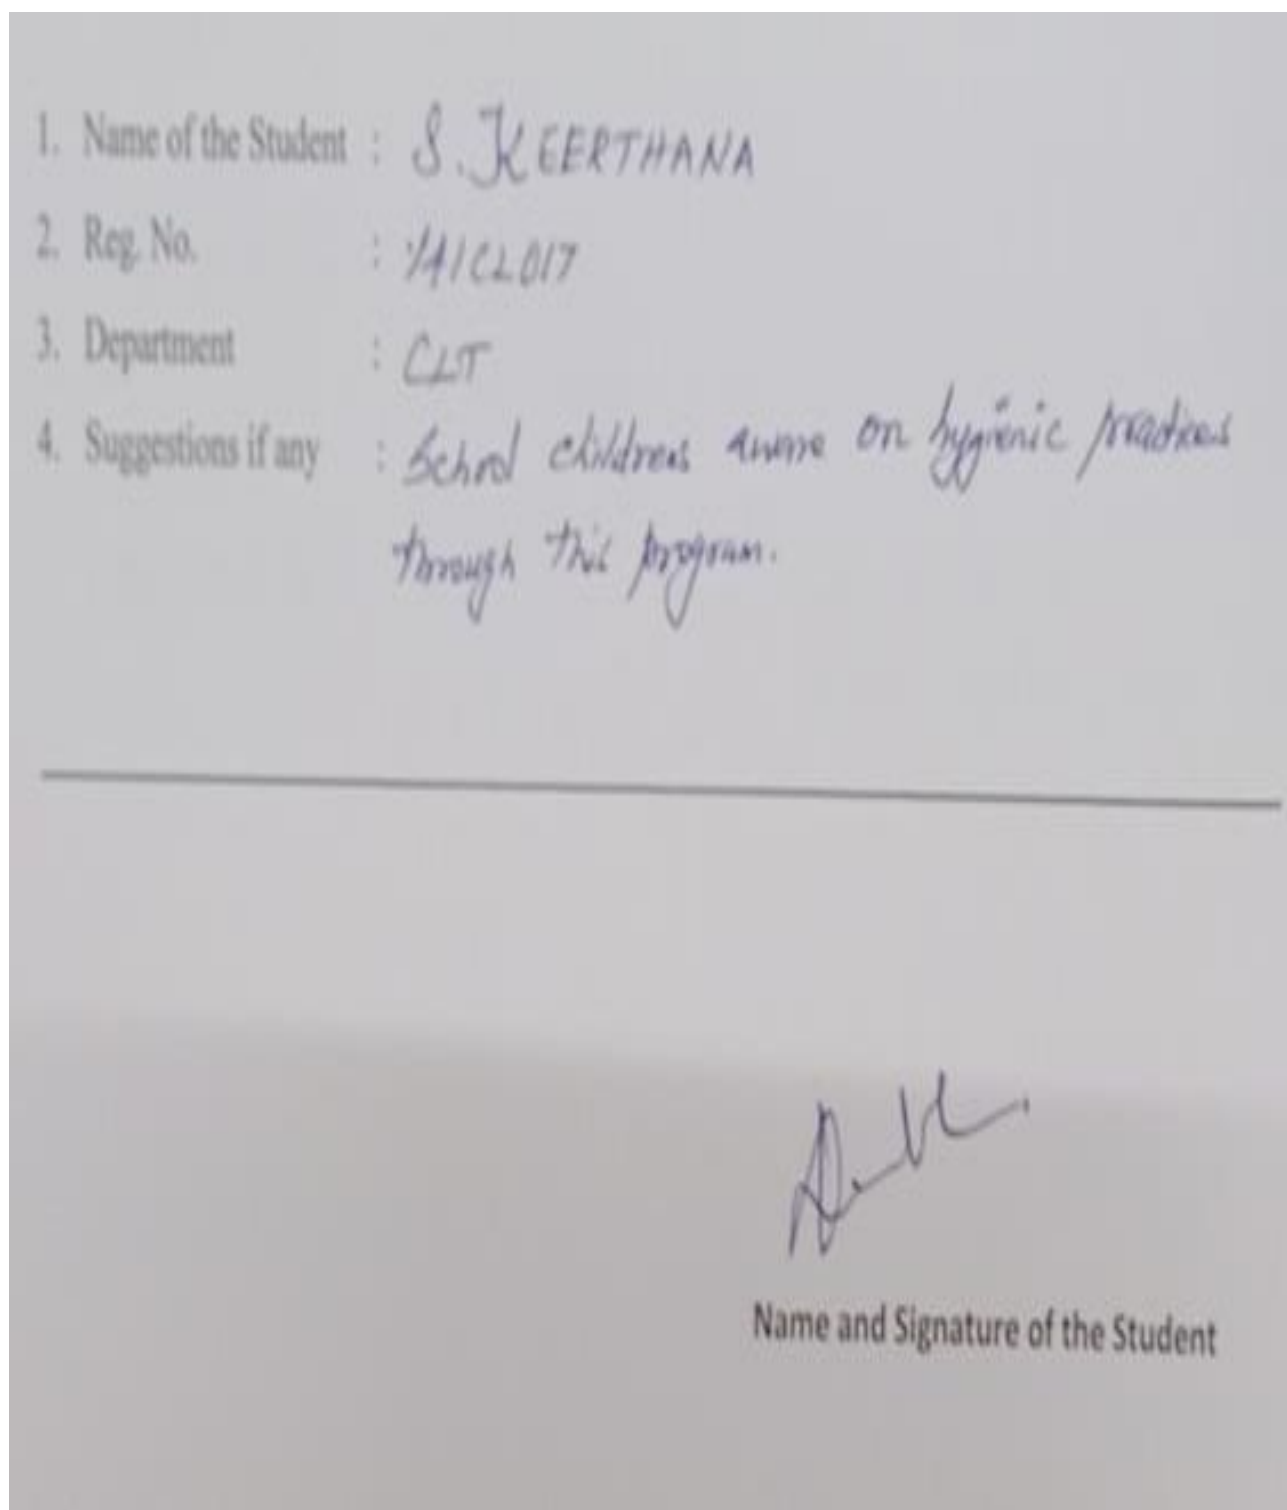 1. Name of the Student : S. KEERTHANA
2. Reg. No. :
3. Department : CLT
4. Suggestions if any : School childrens aware on hygienic practices
through this program.
Name and Signature of the Student